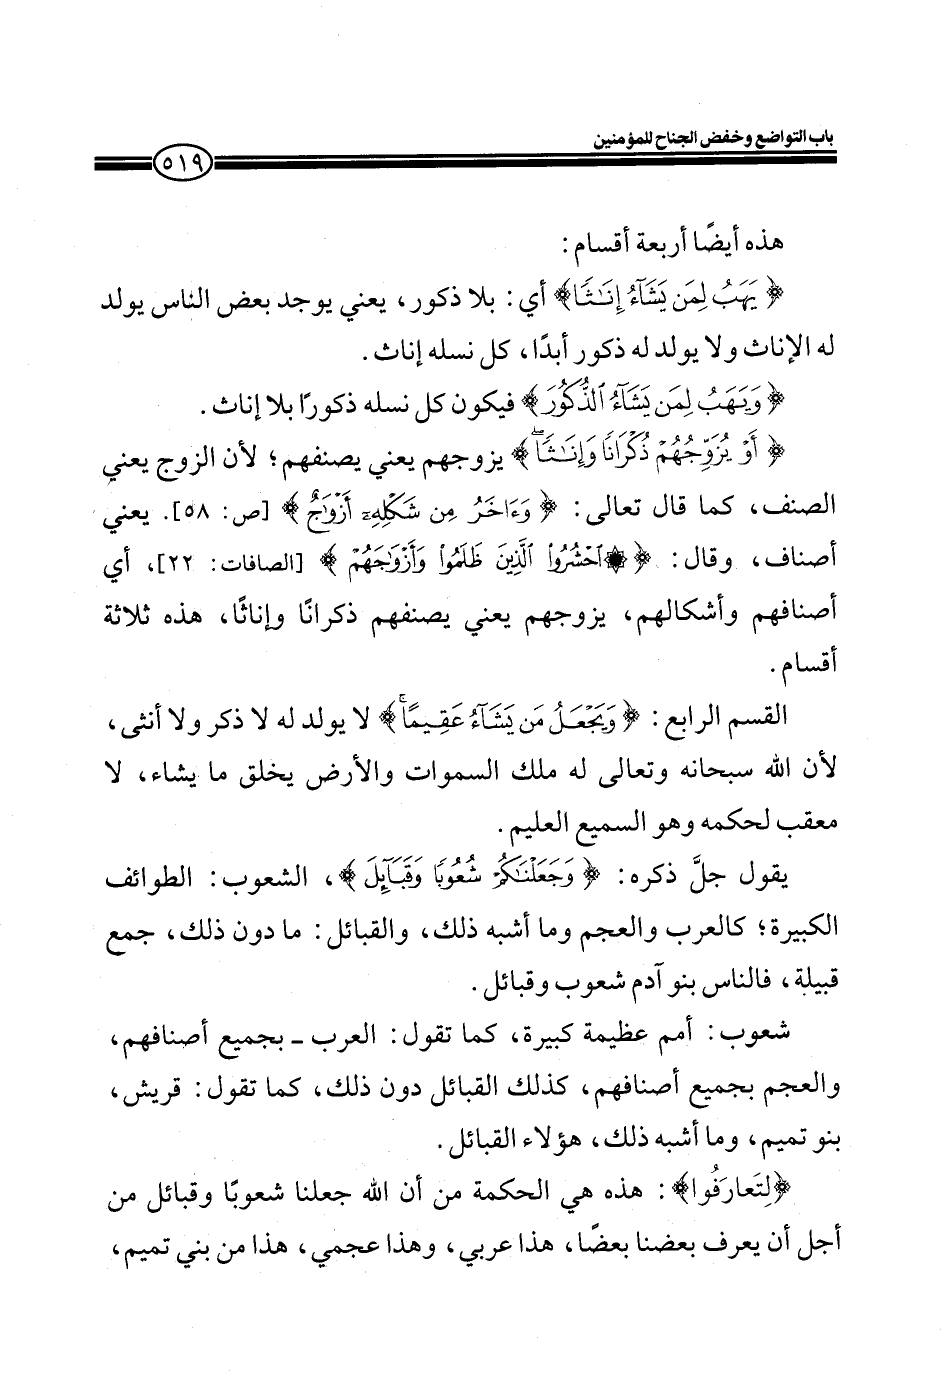 باب التواضع وخفض الجناح للمؤمنين
٥١٩
هذه أيضًا أربعة أقسام:
﴿يَهَبُ لِمَن يَشَآءُ إِنَٰثًا﴾ أي: بلا ذكور، يعني يوجد بعض الناس يولد
له الإناث ولا يولد له ذكور أبدًا، كل نسله إناث.
﴿وَيَهَبُ لِمَن يَشَآءُ ٱلذُّكُورَ﴾ فيكون كل نسله ذكورًا بلا إناث.
﴿أَوۡ يُزَوِّجُهُمۡ ذُكۡرَانًا وَإِنَٰثًاۖ﴾ يزوجهم يعني يصنفهم؛ لأن الزوج يعني
الصنف، كما قال تعالى: ﴿وَءَاخَرُ مِن شَكۡلِهِۦٓ أَزۡوَٰجٌ﴾ [ص: ٥٨]. يعني
أصناف، وقال: ﴿۞ٱحۡشُرُواْ ٱلَّذِينَ ظَلَمُواْ وَأَزۡوَٰجَهُمۡ﴾ [الصافات: ٢٢]، أي
أصنافهم وأشكالهم، يزوجهم يعني يصنفهم ذكرانًا وإناثًا، هذه ثلاثة
أقسام.
القسم الرابع: ﴿وَيَجۡعَلُ مَن يَشَآءُ عَقِيمًاۚ﴾ لا يولد له لا ذكر ولا أنثى،
لأن الله سبحانه وتعالى له ملك السموات والأرض يخلق ما يشاء، لا
معقب لحكمه وهو السميع العليم.
يقول جلَّ ذكره: ﴿وَجَعَلۡنَٰكُمۡ شُعُوبًا وَقَبَآئِلَ﴾، الشعوب: الطوائف
الكبيرة؛ كالعرب والعجم وما أشبه ذلك، والقبائل: ما دون ذلك، جمع
قبيلة، فالناس بنو آدم شعوب وقبائل.
شعوب: أمم عظيمة كبيرة، كما تقول: العرب ـ بجميع أصنافهم،
والعجم بجميع أصنافهم، كذلك القبائل دون ذلك، كما تقول: قريش،
بنو تميم، وما أشبه ذلك، هؤلاء القبائل.
﴿لِتَعَارَفُوا﴾: هذه هي الحكمة من أن الله جعلنا شعوبًا وقبائل من
أجل أن يعرف بعضنا بعضًا، هذا عربي، وهذا عجمي، هذا من بني تميم،